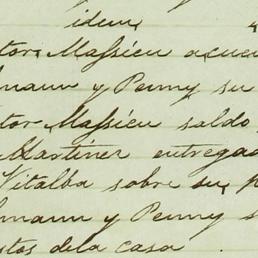 idem
tor Massieu acuen
mann y Penny su
tor Massieu saldo
Martinez entregad
Vitalba sobre su p
mann y Penny s
tos dela casa.